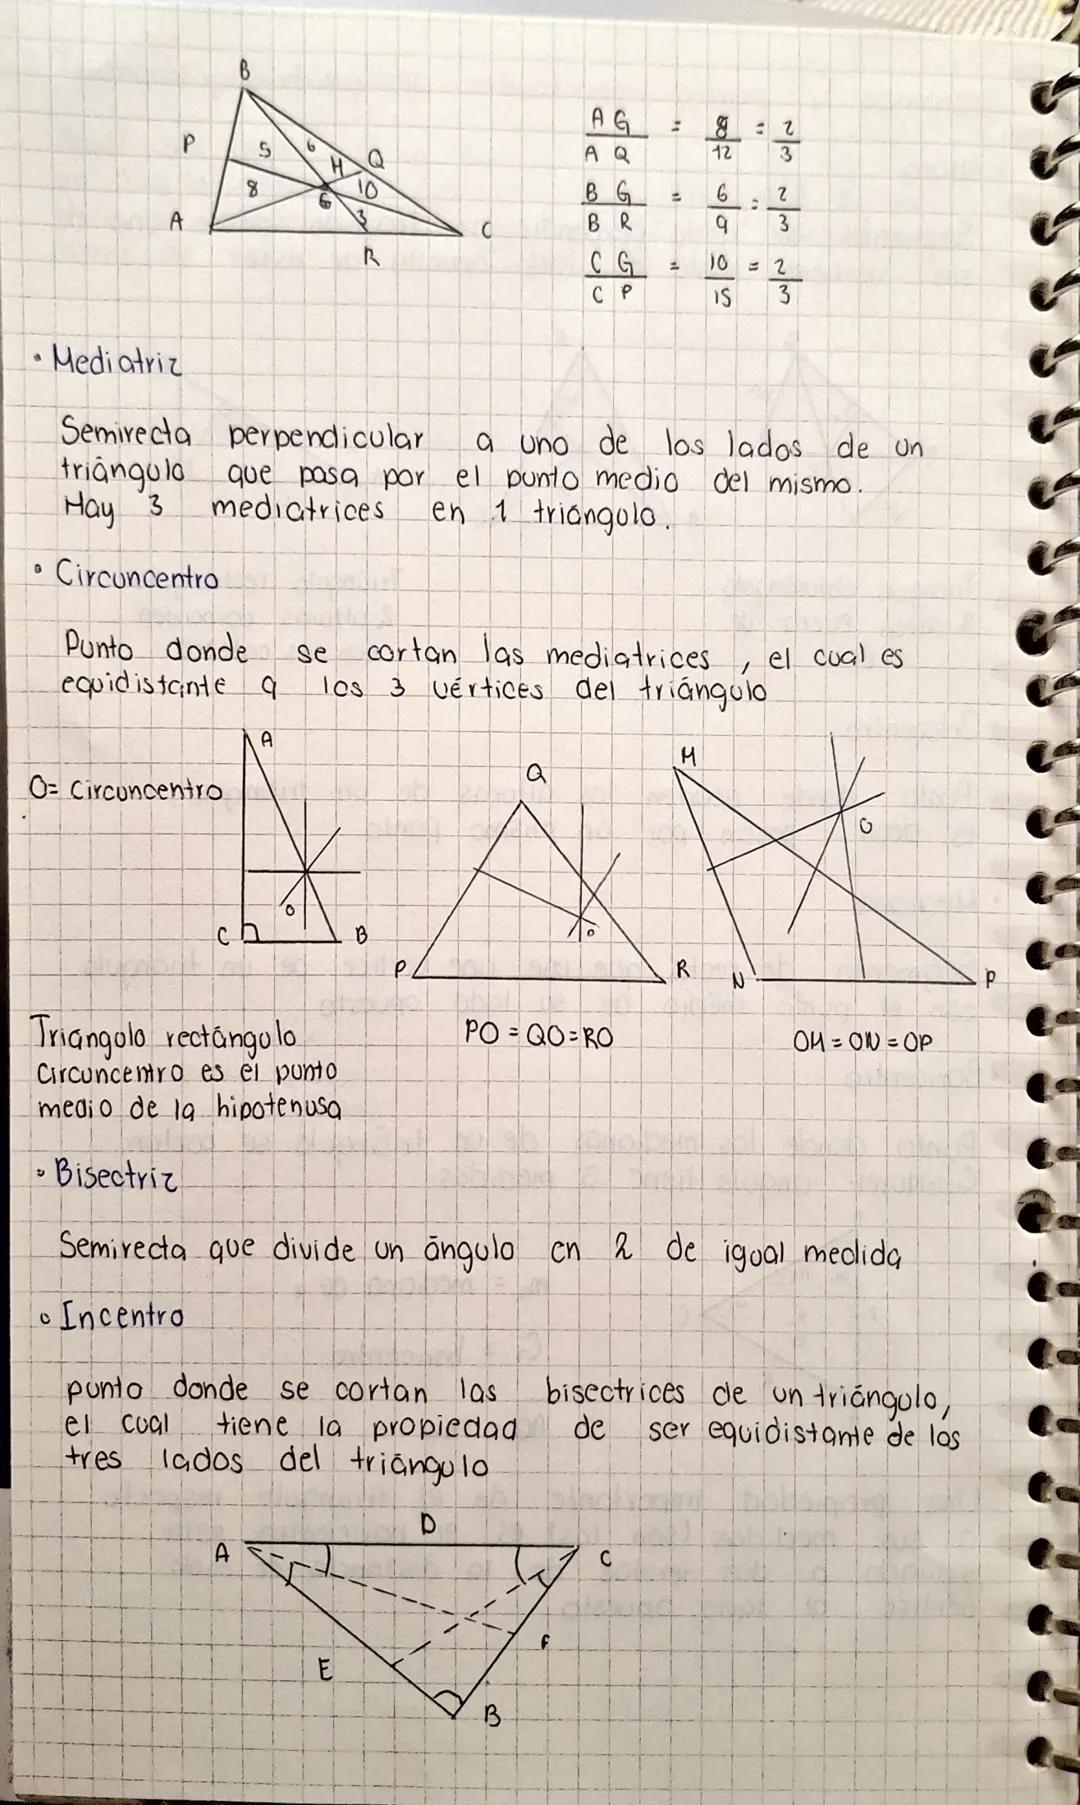 B
P 5 6 H Q
8 G 10
A 3 C
R
AG/AQ = 8/12 = 2/3
BG/BR = 6/9 = 2/3
CG/CP = 10/15 = 2/3
• Mediatriz
Semirecta perpendicular a uno de los lados de un
triángulo que pasa por el punto medio del mismo.
Hay 3 mediatrices en 1 triángulo.
• Circuncentro
Punto donde se cortan las mediatrices, el cual es
equidistante a los 3 vértices del triángulo
O= Circuncentro
A
O
C B
Q
O
P R
M
O
N P
Triángulo rectángulo
Circuncentro es el punto
medio de la hipotenusa
PO = QO = RO
OM = ON = OP
• Bisectriz
Semirecta que divide un ángulo en 2 de igual medida
• Incentro
punto donde se cortan las bisectrices de un triángulo,
el cual tiene la propiedad de ser equidistante de los
tres lados del triángulo
D
A C
F
E
B